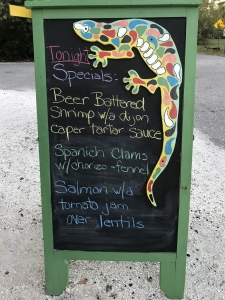 Tonight
Specials:
Beer Battered
Shrimp w/a dijon
caper tartar sauce
Spanish Clams
w/chorizo-fennel
Salmon w/a
tomato jam
over lentils